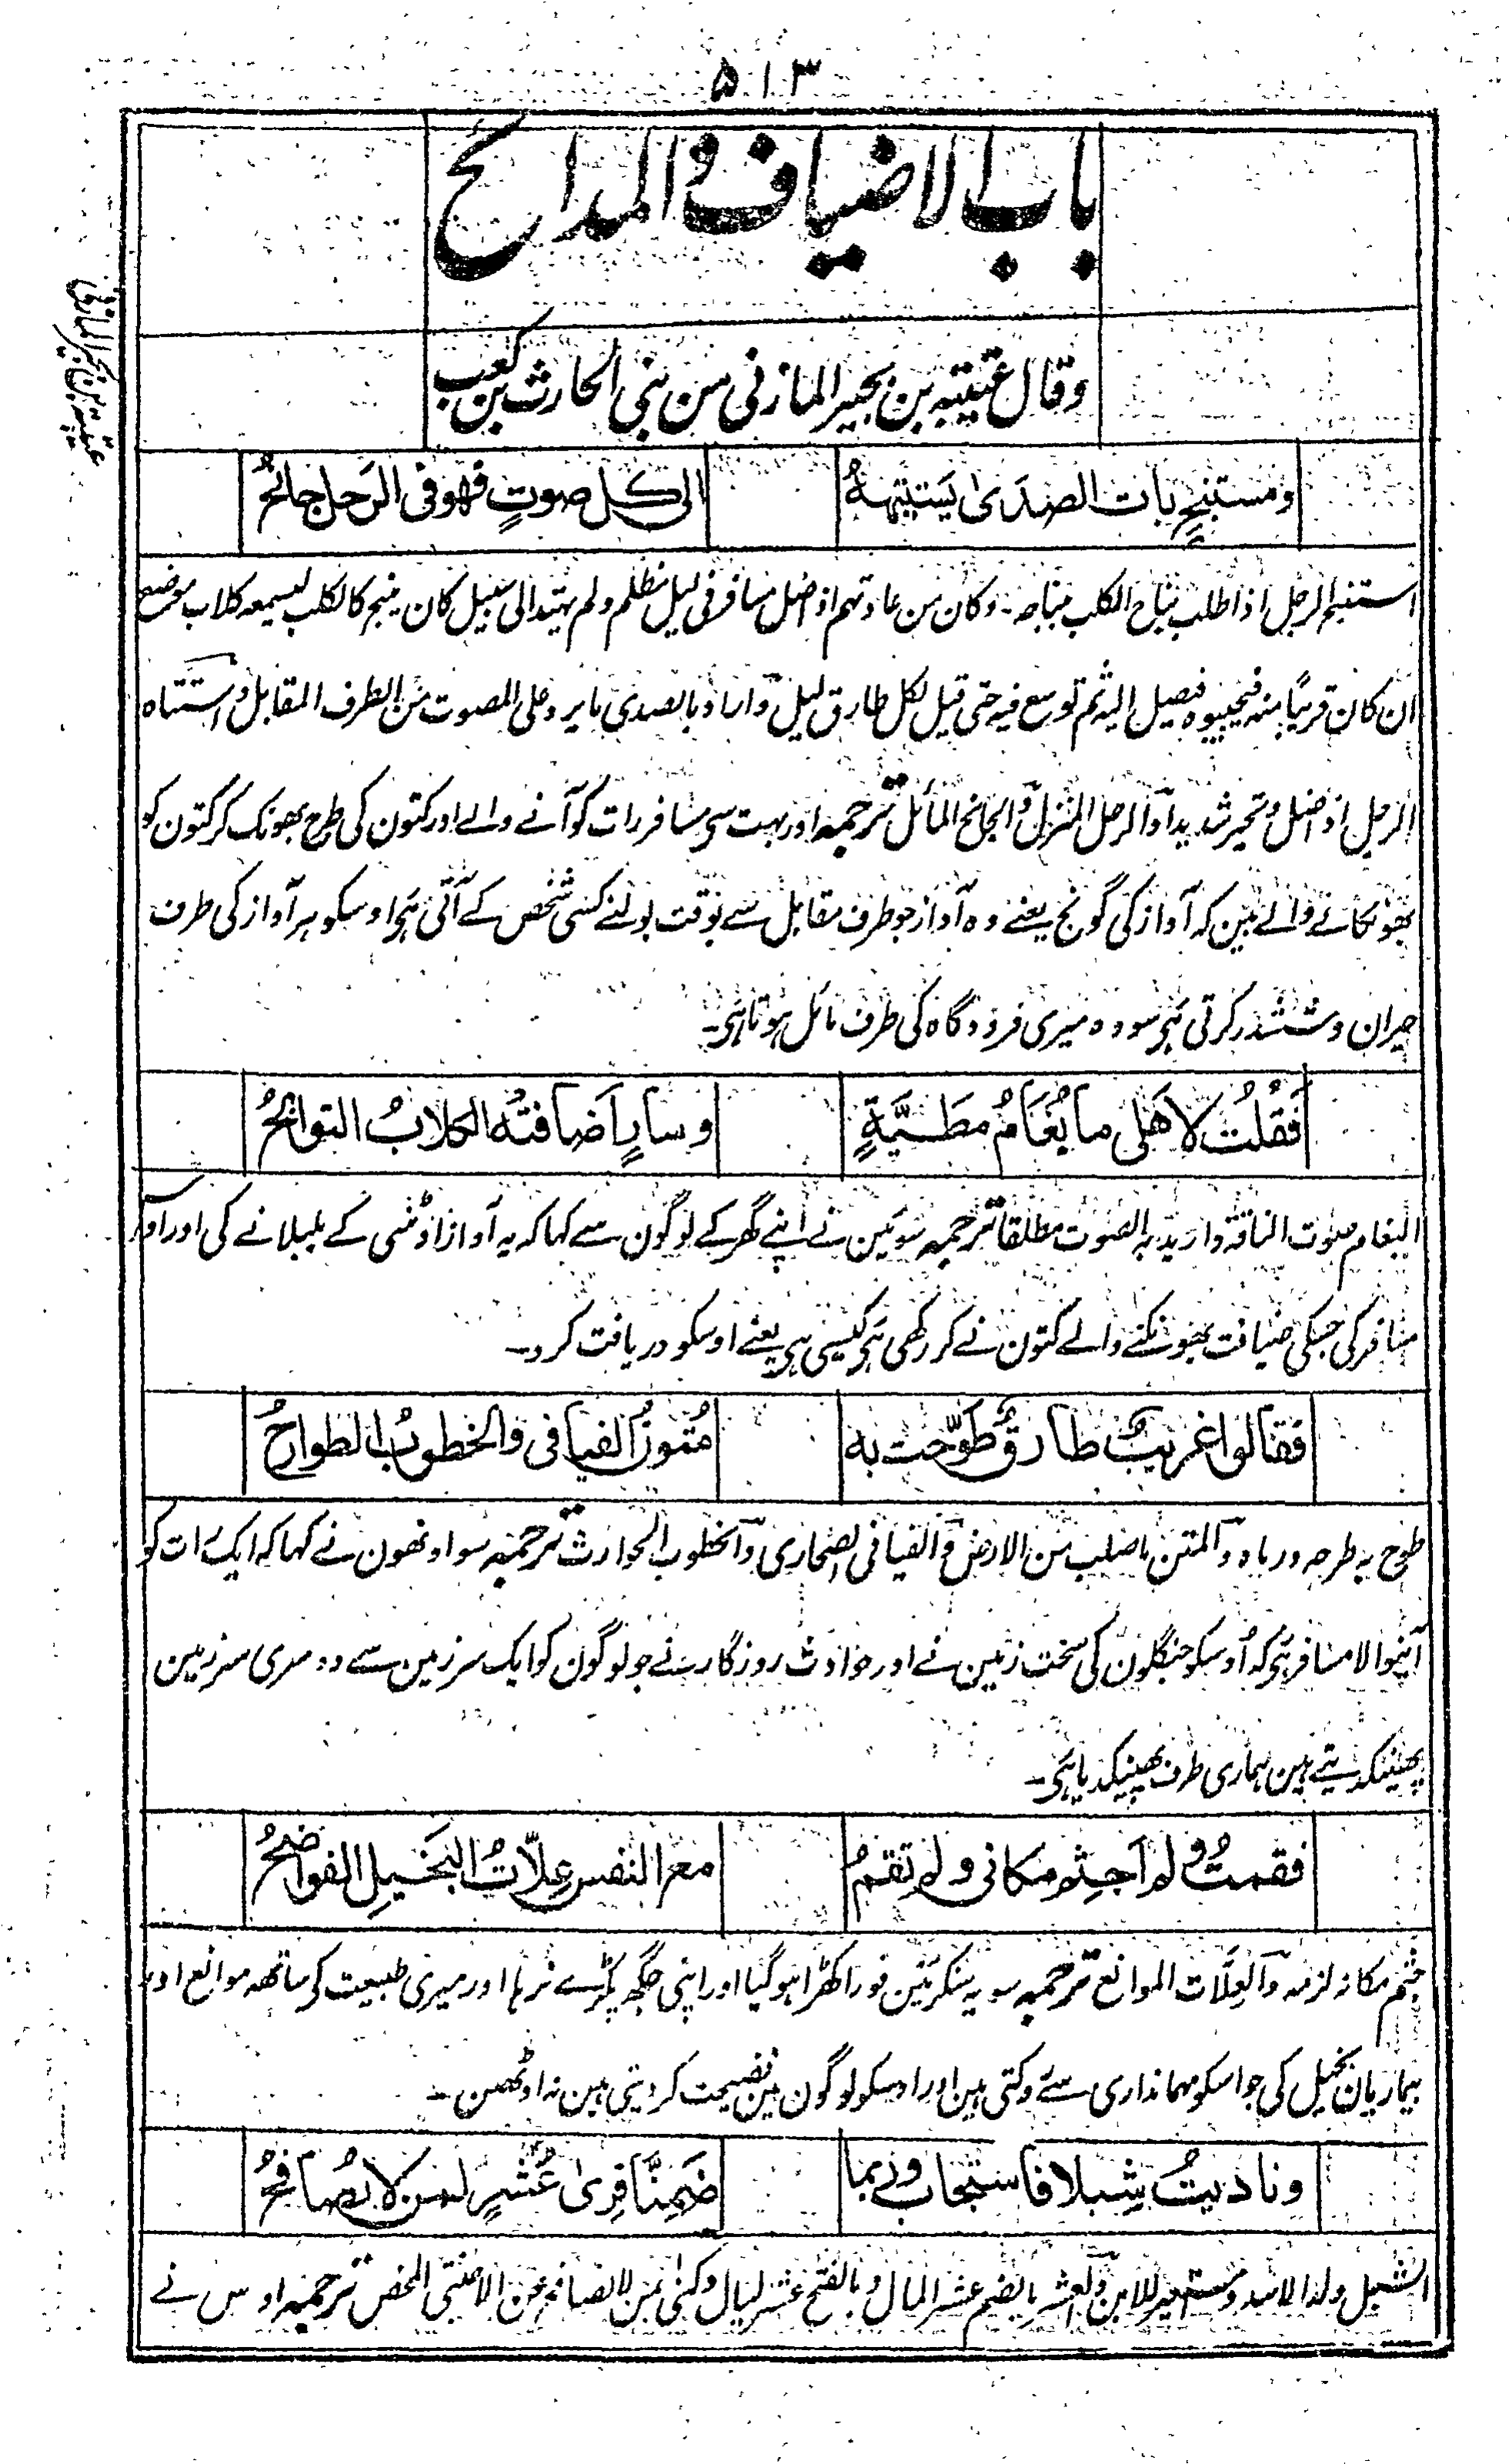 ۵۱۳
باب الاضیاف والمدائح
وقال عتیبۃ بن بجیر المازنی من بنی الحارث بن کعب
عتیبۃ بن بجیر المازنی
ومستنبحٍ بات الصدَیٰ یَستتیههُ الی کل صوتٍ فهو فی الرَحل جانحُ
استنبح الرجل اذا طلب نباح الکلب بنباحہ۔ وکان من عادتهم اذا ضل مسافر فی لیل مظلم ولم یهتد الی سبیل کان ینبح کالکلب لیسمعہ کلاب موضع
ان کان قریباً منہ فیجیبوہ فیصیل الیہ ثم توسع فیہ حتی قیل لکل طارق لیل وآراد بالصدی مایرد علی المصوت من الطرف المقابل واستتاہ
الرجل اذا ضل وتحیر شدیداً وآلرحل المنزل وآلجانح المائل ترجمہ اور بہت سی مسافر رات کو آنے والے اور کتون کی طرح بھونک کر کتون کو
بھونکانے والے ہین کہ آواز کی گونج یعنے وہ آواز جو طرف مقابل سے بوقت بولنے کسی شخص کے آتی ہی اوسکو ہر آواز کی طرف
حیران وششدر کرتی ہی سو وہ میری فرودگاہ کی طرف مائل ہوتا ہی۔
فَقُلْتُ لاَهلی ما بُغَامُ مَطِیَّةٍ وسارٍ اَضافتهُ الکلابُ النوابحُ
البغام صوت الناقۃ وارید بہ الصوت مطلقاً ترجمہ سو مین نے اپنے گھر کے لوگون سے کہا کہ یہ آواز اونٹنی کے بلبلانے کی اور آواز
مسافر کی جسکی ضیافت بھونکنے والے کتون نے کر رکھی ہی کیسی ہی یعنے اوسکو دریافت کرو۔
فقالوا غریبٌ طارقٌ طوّحت به مُتونُ الفیافی والخطوبُ الطوارحُ
طوح بہ طرحہ ورماہ وآلمتن ماصلب من الارض وآلفیافی الصحاری وآلخطوب الحوادث ترجمہ سو اونھون نے کہا کہ ایک رات کو
آنیوالا مسافر ہی کہ اوسکو جنگلون کی سخت زمین نے اور حوادث روزگار نے جو لوگون کو ایک سرزمین سے دوسری سرزمین
پھینکدیتے ہین ہماری طرف پھینکدیا ہی۔
فقمتُ ولم اَجثِم مکانی ولم تقمُ مع النفس عِلّاتُ البَخیلِ الفواضحُ
جثم مکانہ لزمہ وآلعِلّات الموانع ترجمہ سو یہ سنکر مین فورا کھڑا ہو گیا اور اپنی جگھ پکڑے نرہا اور میری طبیعت کے ساتھ موانع اور
بیماریان بخیل کی جو اسکو مہمانداری سے روکتی ہین اور اوسکو لوگون مین فضیحت کر دیتی ہین نہ اوٹھین۔
ونادیتُ شِبلا فاستجاب وربما ضَمِنّا قِرَیٰ عُشرٍ لمن لا نُصافحُ
الشبل ولد الاسد ومستعیر للابن وآلعشر بالضم عشر المال وبالفتح عشر لیال وکنی بمن لا نصافحہ عن الاجنبی المحض ترجمہ اوس نے